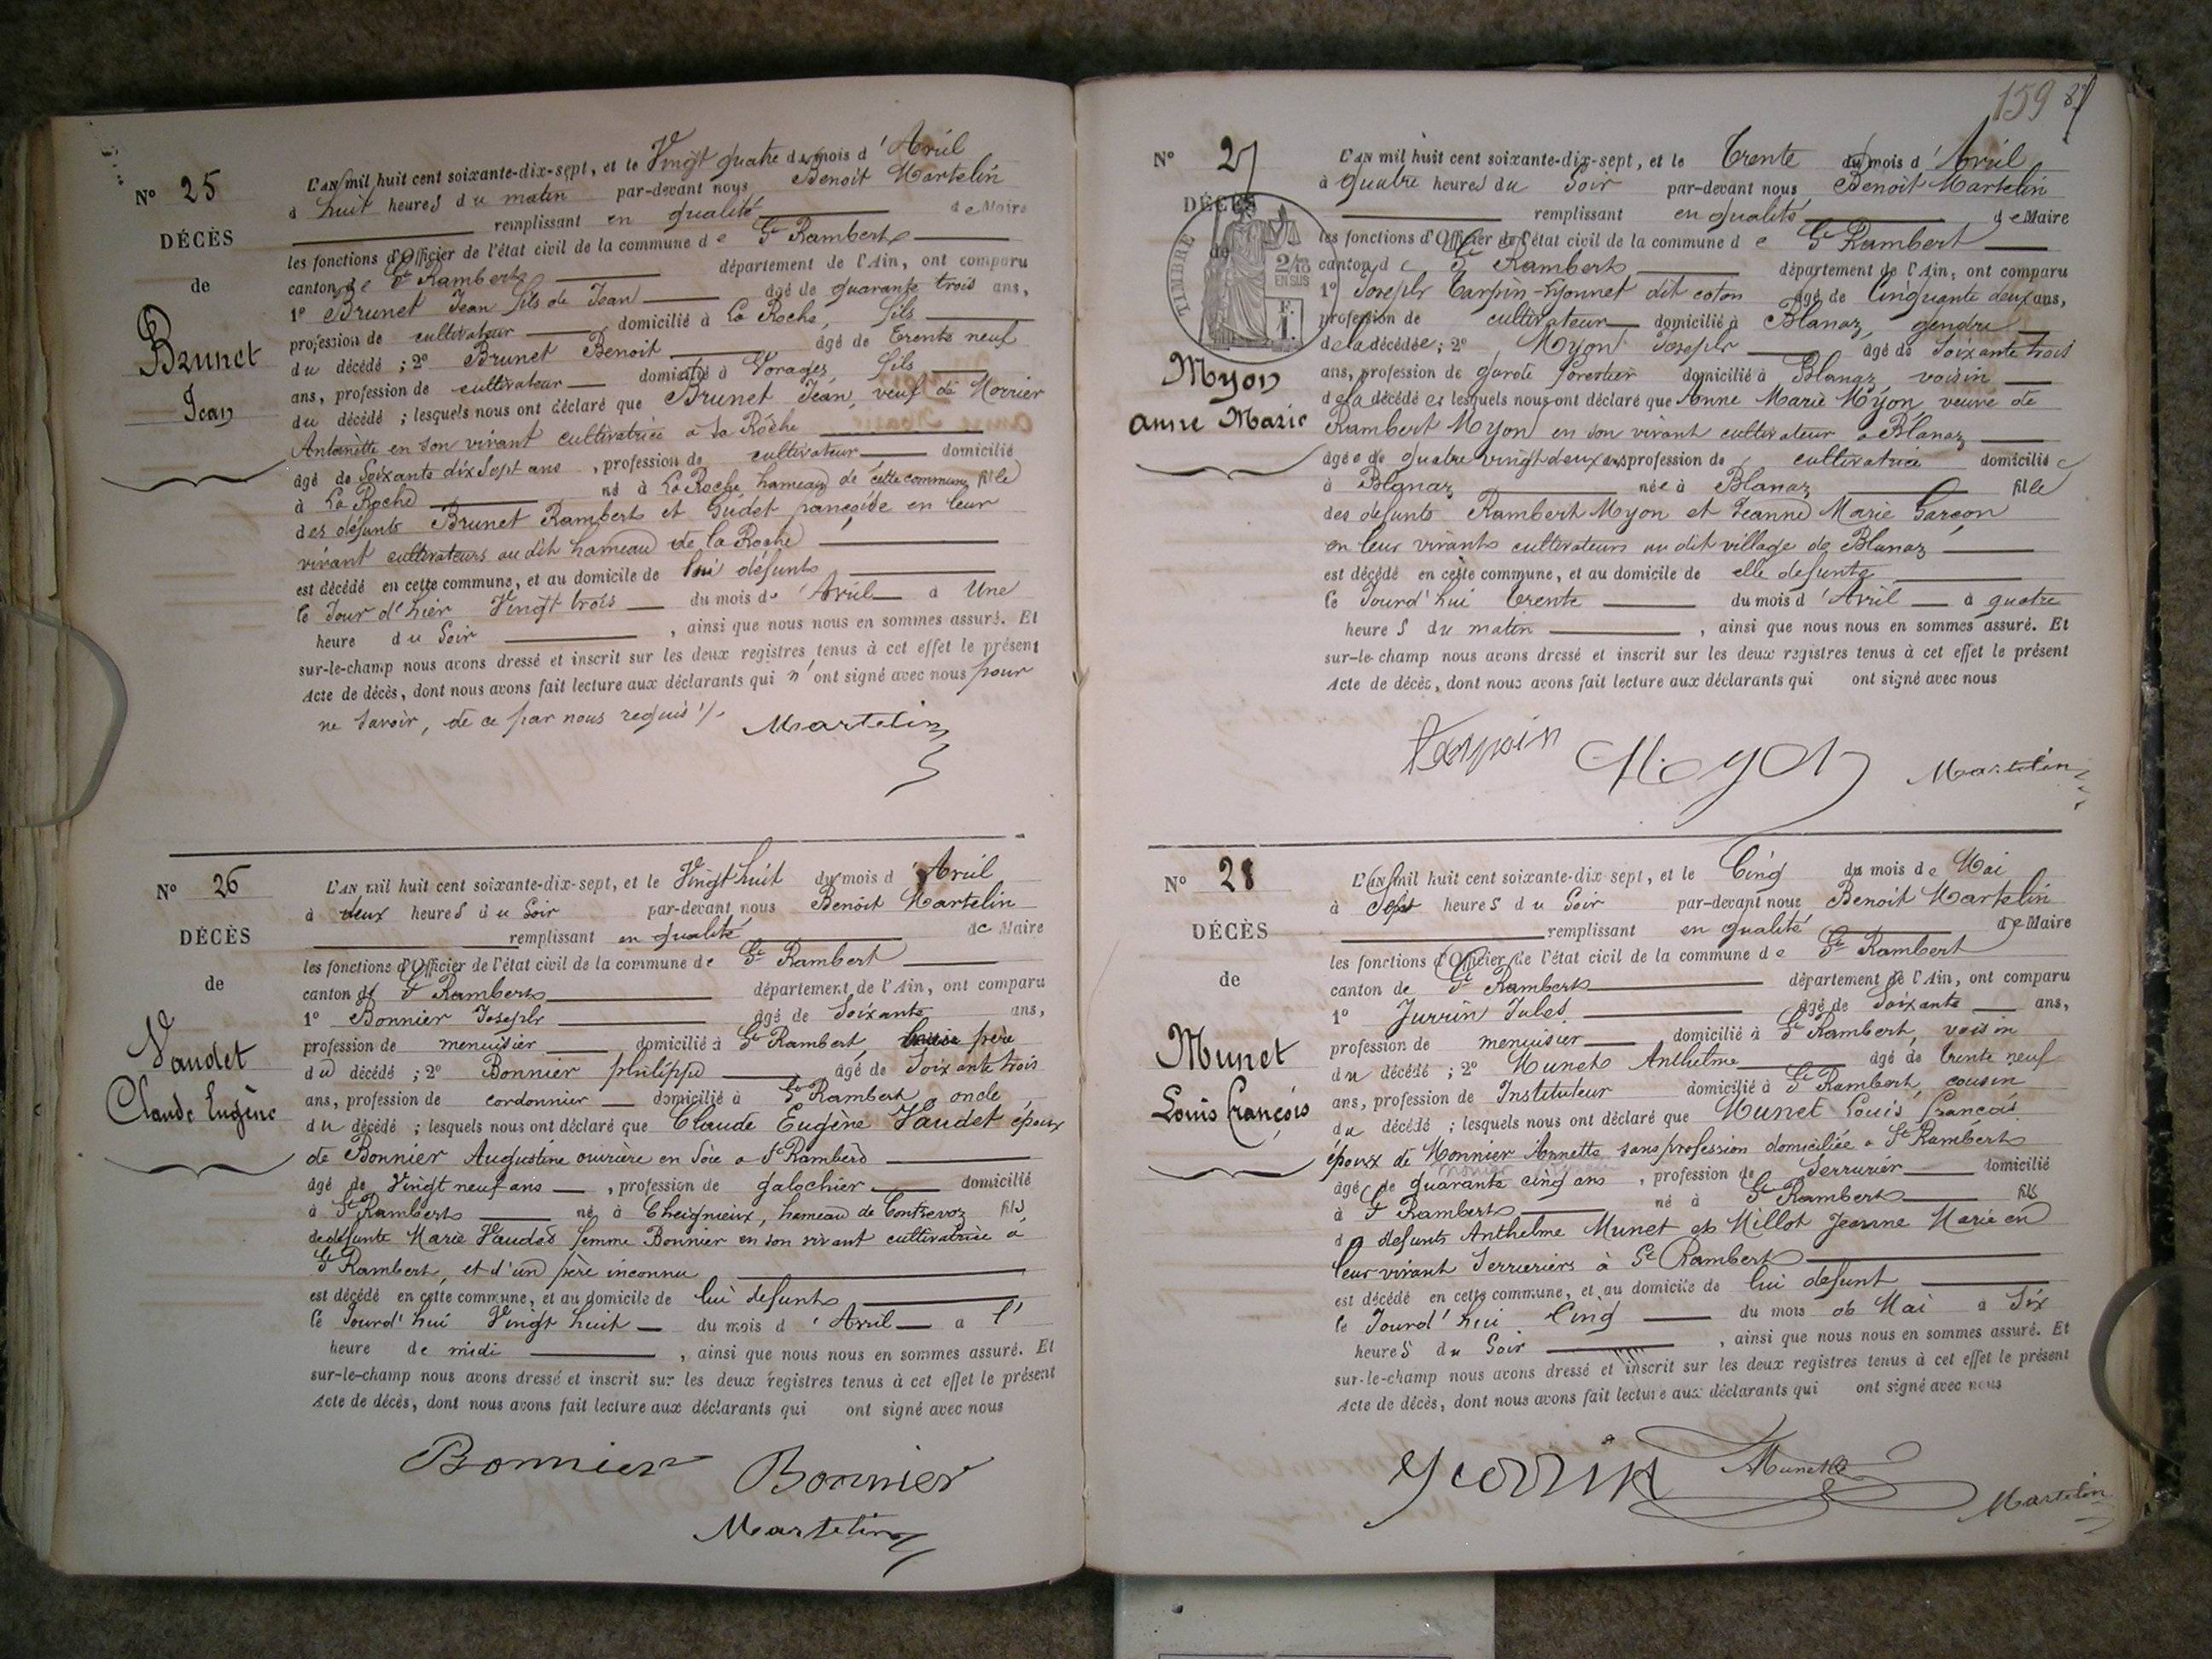 Nº 25
DÉCÈS
de
Brunet
Jean
L'AN mil huit cent soixante-dix-sept, et le Vingt quatre du mois d'Avril
à huit heures du matin par-devant nous Benoit Martelin
remplissant en qualité de Maire
les fonctions d'Officier de l'état civil de la commune de St Rambert
canton de St Rambert département de l'Ain, ont comparu
1º Brunet Jean fils de Jean âgé de quarante trois ans,
profession de cultivateur domicilié à La Roche, fils
du décédé ; 2º Brunet Benoit âgé de trente neuf
ans, profession de cultivateur domicilié à Vorages fils
du décédé ; lesquels nous ont déclaré que Brunet Jean, veuf de Morrier
Antoinette en son vivant cultivatrice à La Roche
âgé de soixante dix sept ans, profession de cultivateur domicilié
à La Roche né à La Roche, hameau de cette commune fils
des défunts Brunet Rambert et Gudet en leur
vivant cultivateurs au dit hameau de la Roche
est décédé en cette commune, et au domicile de lui défunt
le Jour d'hier Vingt trois du mois d'Avril à Une
heure du Soir, ainsi que nous nous en sommes assuré. Et
sur-le-champ nous avons dressé et inscrit sur les deux registres tenus à cet effet le présent
Acte de décès, dont nous avons fait lecture aux déclarants qui n'ont signé avec nous pour
ne savoir, de ce par nous requis ./.
Martelin
Nº 26
DÉCÈS
de
Vaudet
Claude Eugène
L'AN mil huit cent soixante-dix-sept, et le Vingt huit du mois d'Avril
à deux heures du Soir par-devant nous Benoit Martelin
remplissant en qualité de Maire
les fonctions d'Officier de l'état civil de la commune de St Rambert
canton de St Rambert département de l'Ain, ont comparu
1º Bonnier Joseph âgé de Soixante ans,
profession de menuisier domicilié à St Rambert, père
du décédé ; 2º Bonnier philippe âgé de Soixante trois
ans, profession de cordonnier domicilié à St Rambert, oncle
du décédé ; lesquels nous ont déclaré que Claude Eugène Vaudet époux
de Bonnier Augustine ouvrière en soie à St Rambert
âgé de Vingt neuf ans, profession de galochier domicilié
à St Rambert né à Cheignieux, hameau de Contrevoz fils
de défunte Marie Vaudet femme Bonnier en son vivant cultivatrice à
St Rambert, et d'un père inconnu
est décédé en cette commune, et au domicile de lui défunt
le Jourd'hui Vingt huit du mois d'Avril à l'
heure de midi, ainsi que nous nous en sommes assuré. Et
sur-le-champ nous avons dressé et inscrit sur les deux registres tenus à cet effet le présent
Acte de décès, dont nous avons fait lecture aux déclarants qui ont signé avec nous
Bonnier Bonnier
Martelin
159
Nº 27
DÉCÈS
de
TIMBRE
2/10
EN SUS
Myon
Anne Marie
L'AN mil huit cent soixante-dix-sept, et le Trente du mois d'Avril
à quatre heures du Soir par-devant nous Benoit Martelin
remplissant en qualité de Maire
les fonctions d'Officier de l'état civil de la commune de St Rambert
canton de St Rambert département de l'Ain, ont comparu
1º Joseph Tarpin-Lyonnet dit coton âgé de Cinquante deux ans,
profession de cultivateur domicilié à Blanaz, gendre
de la décédée ; 2º Myon Joseph âgé de Soixante trois
ans, profession de garde forestier domicilié à Blanaz, voisin
de la décédée lesquels nous ont déclaré que Anne Marie Myon veuve de
Rambert Myon en son vivant cultivateur à Blanaz
âgée de quatre vingt deux ans profession de cultivatrice domiciliée
à Blanaz née à Blanaz fille
des defunts Rambert Myon et Jeanne Marie Garçon
en leur vivants cultivateurs au dit village de Blanaz
est décédé en cette commune, et au domicile de elle defunte
le Jourd'hui Trente du mois d'Avril à quatre
heures du matin, ainsi que nous nous en sommes assuré. Et
sur-le-champ nous avons dressé et inscrit sur les deux registres tenus à cet effet le présent
Acte de décès, dont nous avons fait lecture aux déclarants qui ont signé avec nous
Tarpin Myon Martelin
Nº 28
DÉCÈS
de
Munet
Louis François
L'AN mil huit cent soixante-dix-sept, et le Cinq du mois de Mai
à Sept heures du Soir par-devant nous Benoit Martelin
remplissant en qualité de Maire
les fonctions d'Officier de l'état civil de la commune de St Rambert
canton de St Rambert département de l'Ain, ont comparu
1º Juvrin Jules âgé de Soixante ans,
profession de menuisier domicilié à St Rambert, voisin
du décédé ; 2º Munet Anthelme âgé de trente neuf
ans, profession de Instituteur domicilié à St Rambert, cousin
du décédé ; lesquels nous ont déclaré que Munet Louis françois
époux de Monnier Annette sans profession domiciliée à St Rambert
âgé de quarante cinq ans, profession de Serrurier domicilié
à St Rambert né à St Rambert fils
de defunts Anthelme Munet et Millot Jeanne Marie en
leur vivant Serruriers à St Rambert
est décédé en cette commune, et au domicile de lui defunt
le Jourd'hui Cinq du mois de Mai à Six
heures du Soir, ainsi que nous nous en sommes assuré. Et
sur-le-champ nous avons dressé et inscrit sur les deux registres tenus à cet effet le présent
Acte de décès, dont nous avons fait lecture aux déclarants qui ont signé avec nous
Munet Martelin